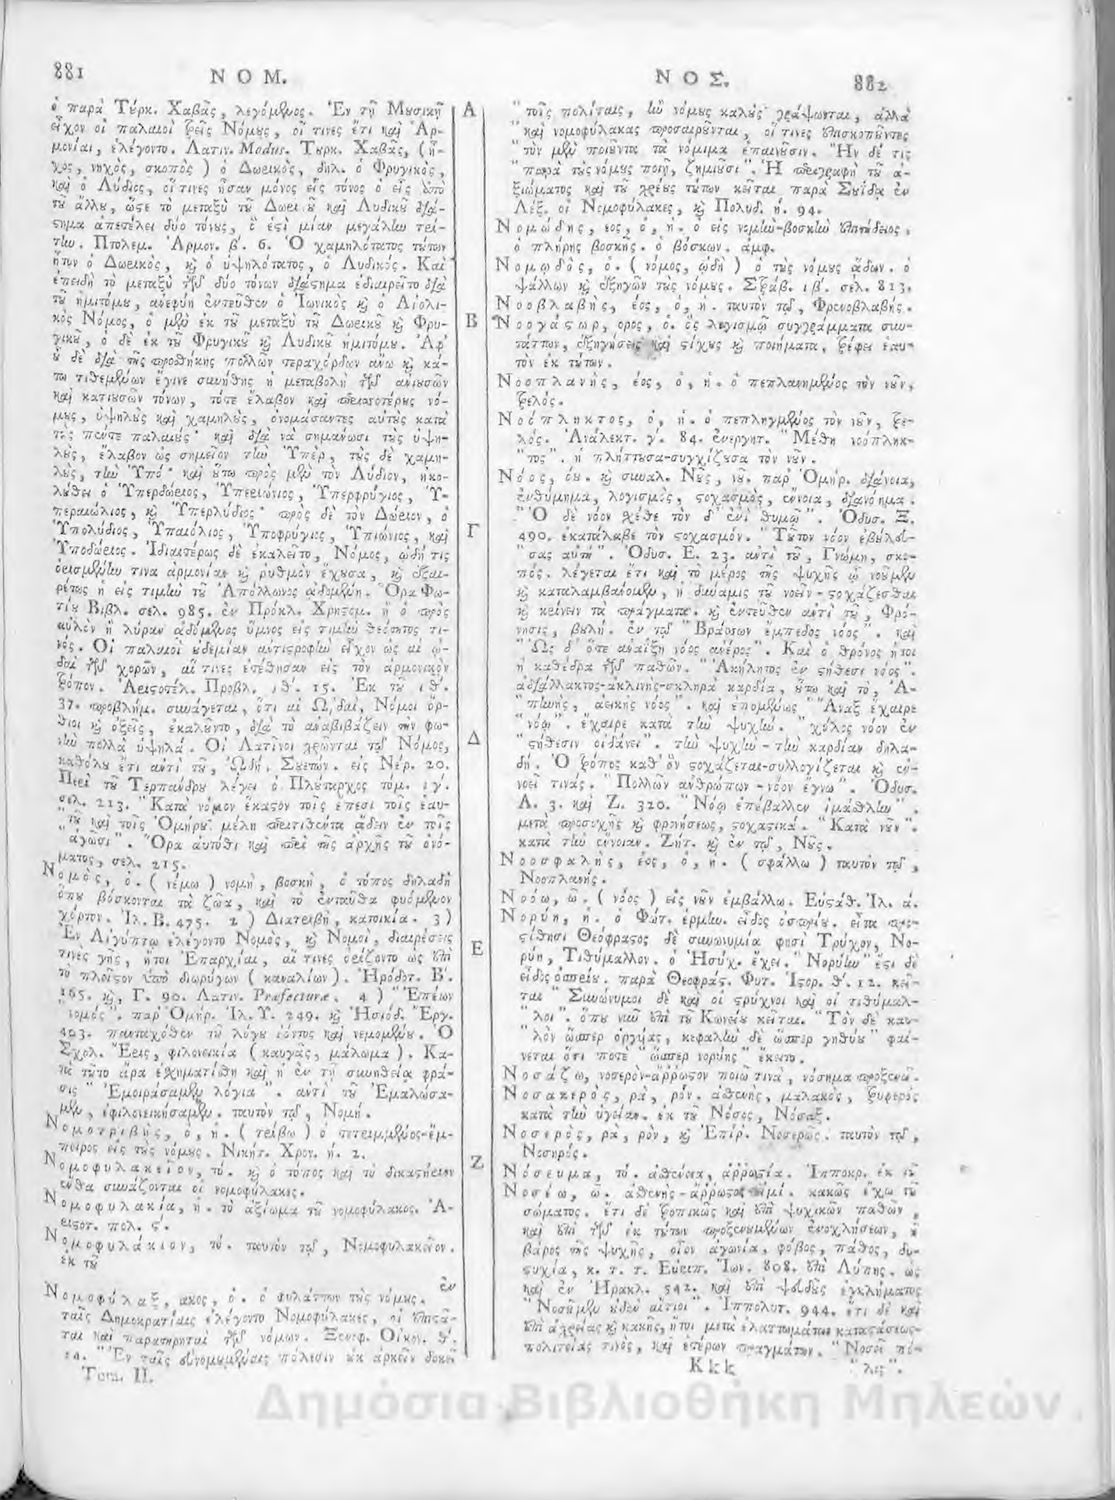 881 ΝΟΜ.
ὁ παρὰ Τύρκ. Χαβᾶς, λεγόμενος. Ἐν τῇ Μυσικῇ
εἶχον οἱ παλαιοὶ τρεῖς Νόμυς, οἵ τινες ἔτι καὶ Ἁρ-
μονίαι, ἐλέγοντο. Λατιν. Modus. Τυρκ. Χαβᾶς, (ἦ-
χος, νηχός, σκοπὸς) ὁ Δωρικὸς, δηλ. ὁ Φρυγικός,
καὶ ὁ Λύδιος, οἵ τινες ἦσαν μόνος εἷς τόνος ὁ εἷς ἀπὸ
τῦ ἄλλυ, ὥςε τὸ μεταξὺ τῦ Δωρικῦ καὶ Λυδικῦ διά-
ςημα ἀπετέλει δύο τόνυς, ὅ ἐςὶ μίαν μεγάλην τρί-
την. Πτολεμ. Ἁρμον. β΄. 6. Ὁ χαμηλότατος τύτων
ἦτον ὁ Δωρικὸς, καὶ ὁ ὑψηλότατος, ὁ Λυδικός. Καὶ
ἐπειδὴ τὸ μεταξὺ τῶν δύο τόνων διάςημα ἐδιαιρεῖτο διὰ
τῦ ἡμιτόμυ, ἀνεφύη ἐντεῦθεν ὁ Ἰωνικὸς καὶ ὁ Αἰολι-
κὸς Νόμος, ὁ μὲν ἐκ τῦ μεταξὺ τῦ Δωρικῦ καὶ Φρυ-
γικῦ, ὁ δὲ ἐκ τῦ Φρυγικῦ καὶ Λυδικῦ ἡμιτόμυ. Ἀφ᾽
ὗ δὲ διὰ τῆς προσθήκης πολλῶν τεραχόρδων ἄνω καὶ κά-
τω τιθεμένων ἔγινε συνήθης ἡ μεταβολὴ τῶν ἀνιυσῶν
καὶ κατιυσῶν τόνων, τότε ἔλαβον καὶ περισσοτέρυς νό-
μυς, ὑψηλὺς καὶ χαμηλὺς, ὀνομάσαντες αὐτὺς κατὰ
τὺς πέντε παλαιύς· καὶ διὰ νὰ σημάνωσι τὺς ὑψη-
λὺς, ἔλαβον ὡς σημεῖον τὴν Ὑπὲρ, τὺς δὲ χαμη-
λὺς, τὴν Ὑπό· καὶ ὕτω πρὸς μὲν τὸν Λύδιον, ἠκο-
λύθει ὁ Ὑπερδώριος, Ὑπεριώνιος, Ὑπερφρύγιος, Ὑ-
περαιώλιος, καὶ Ὑπερλύδιος· πρὸς δὲ τὸν Δώριον, ὁ
Ὑπολύδιος, Ὑπαιόλιος, Ὑποφρύγιος, Ὑπιώνιος, καὶ
Ὑποδώριος. Ἰδιαιτέρως δὲ ἐκαλεῖτο, Νόμος, ᾠδή τις
ὁρισμένην τινα ἁρμονίαν καὶ ῥυθμὸν ἔχυσα, καὶ ἐξαι-
ρέτως ἡ εἰς τιμὴν τῦ Ἀπόλλωνος ᾀδομένη. Ὅρα Φω-
τίυ Βιβλ. σελ. 985. ἐν Πρόκλ. Χρηςομ. ἢ ὁ πρὸς
αὐλὸν ἢ λύραν ᾀδόμενος ὕμνος εἰς τιμὴν θεότητος τι-
νός. Οἱ παλαιοὶ ὐδεμίαν ἀντιςροφὴν εἶχον ὡς αἱ ᾠ-
δαὶ τῶν χορῶν, αἵ τινες ἐτέθησαν εἰς τὸν ἁρμονικὸν
τρόπον. Ἀριςοτέλ. Προβλ. ιθ΄. 15. Ἐκ τῦ ιθ΄.
37. προβλήμ. συνάγεται, ὅτι αἱ Ὠδαὶ, Νόμοι ὄρ-
θιοι καὶ ὀξεῖς, ἐκαλῦντο, διὰ τὸ ἀναβιβάζειν τὴν φω-
νὴν πολλὰ ὑψηλά. Οἱ Λατῖνοι χρῶνται τῷ Νόμος,
καθόλυ ἔτι ἀντὶ τῦ, ᾨδή. Σύετων. εἰς Νέρ. 20.
Περὶ τῦ Τερπάνδρυ λέγει ὁ Πλύταρχος τόμ. ιγ΄.
σελ. 213. "Κατὰ νόμον ἕκαςον τοῖς ἔπεσι τοῖς ἑαυ-
"τῦ καὶ τοῖς Ὁμήρυ μέλη περιτιθέντα ᾄδειν ἐν τοῖς
"ἀγῶσι". Ὅρα αὐτόθι καὶ περὶ τῆς ἀρχῆς τῦ ὀνό-
ματος, σελ. 215.
Νομὸς, ὁ. (νέμω) νομὴ, βοσκὴ, ὁ τόπος δηλαδὴ
ὅπυ βόσκονται τὰ ζῶα, καὶ τὸ ἐνταῦθα φυόμενον
χόρτον. Ἰλ. Β. 475. 2) Διατριβὴ, κατοικία. 3)
Ἐν Αἰγύπτῳ ἐλέγοντο Νομὸς, καὶ Νομοὶ, διαιρέσεις
τινες γῆς, ἤτοι Ἐπαρχίαι, αἵ τινες ὡρίζοντο ὡς ἐπὶ
τὸ πλεῖςον ὑπὸ διωρύγων (καναλίων). Ἡρόδοτ. Β΄.
165. καὶ, Γ. 90. Λατιν. Præfecturæ. 4) "Ἐπέων
νομὸς". παρ᾽ Ὁμήρ. Ἰλ. Υ. 249. καὶ Ἡσιόδ. Ἔργ.
403. πανταχόθεν τῦ λόγυ ἰόντος καὶ νεμομένυ. Ὁ
Σχολ. Ἔρις, φιλονεικία (καυγᾶς, μάλωμα). Κα-
τὰ τῦτο ἄρα ἐσχηματίσθη καὶ ἡ ἐν τῇ συνηθείᾳ φρά-
σις "Ἐμοιράσαμεν λόγια". ἀντὶ τῦ Ἐμαλώσα-
μεν, ἐφιλονεικήσαμεν. ταυτὸν τῷ, Νομή.
Νομοτριβὴς, ὁ, ἡ. (τρίβω) ὁ τετριμμένος-ἔμ-
πειρος εἰς τὺς νόμυς. Νικήτ. Χρον. ή. 2.
Νομοφυλακεῖον, τό. καὶ ὁ τόπος καὶ τὸ δικαςήριον
ἔνθα συνάζονται οἱ νομοφύλακες.
Νομοφυλακία, ἡ. τὸ ἀξίωμα τῦ νομοφύλακος. Ἀ-
ριςοτ. πολ. ς΄.
Νομοφυλάκιον, τό. ταυτὸν τῷ, Νομοφυλακεῖον.
ἐκ τῦ
Νομοφύλαξ, ακος, ὁ. ὁ φυλάττων τὺς νόμυς. ἐν
ταῖς Δημοκρατίαις ἐλέγοντο Νομοφύλακες, οἱ ἐπιςά-
ται καὶ παρατηρηταὶ τῶν νόμων. Ξενοφ. Οἰκον. θ΄.
14. "Ἐν ταῖς εὐνομυμέναις πόλεσιν ὐκ ἀρκεῖν δοκεῖ
Tom. II.
ΝΟΣ. 882
"τοῖς πολίταις, ἢν νόμυς καλὺς γράψωνται, ἀλλὰ
"καὶ νομοφύλακας προσαιρῦνται, οἵ τινες ἐπισκοπῦντες
"τὸν μὲν ποιῦντα τὰ νόμιμα ἐπαινῦσιν. Ἢν δέ τις
"παρὰ τὺς νόμυς ποιῇ, ζημιῦσι". Ἡ περιγραφὴ τῦ ἀ-
ξιώματος καὶ τῦ χρέυς τύτων κεῖται παρὰ Συΐδᾳ ἐν
Λέξ. οἱ Νομοφύλακες, καὶ Πολυδ. ή. 94.
Νομώδης, εος, ὁ, ἡ. ὁ εἰς νομὴν-βοσκὴν ἐπιτήδειος,
ὁ πλήρης βοσκῆς. ὁ βόσκων. ἀμφ.
Νομῳδὸς, ὁ. (νόμος, ᾠδὴ) ὁ τὺς νόμυς ᾄδων. ὁ
ψάλλων καὶ ἐξηγῶν τὺς νόμυς. Στράβ. ιβ΄. σελ. 813.
Νοοβλαβὴς, έος, ὁ, ἡ. ταυτὸν τῷ, Φρενοβλαβής.
Νοογάςωρ, ορος, ὁ. ὃς λογισμῷ συγγράμματα συν-
τάττων, ἐξηγήσεις καὶ ςίχυς καὶ ποιήματα, τρέφει ἑαυ-
τὸν ἐκ τύτων.
Νοοπλανὴς, έος, ὁ, ἡ. ὁ πεπλανημένος τὸν νῦν,
τρελός.
Νοόπληκτος, ὁ, ἡ. ὁ πεπληγμένος τὸν νῦν, τρε-
λός. Ἀνάλεκτ. γ. 84. ἐνεργητ. "Μέθη νοόπληκ-
"τος". ἡ πλήττυσα-συγχίζυσα τὸν νῦν.
Νόος, όυ. καὶ συναλ. Νῦς, νῦ. παρ᾽ Ὁμήρ. διάνοια,
ἐνθύμημα, λογισμὸς, ςοχασμὸς, ἔννοια, διανόημα.
"Ὁ δὲ νόον σχέθε τὸν δ᾽ ἐνὶ θυμῷ". Ὀδυσ. Ξ.
490. ἐκατάλαβε τὸν ςοχασμόν. "Τῦτον νόον ἐβύλευ-
"σας αὐτή". Ὀδυσ. Ε. 23. ἀντὶ τῦ, Γνώμη, σκο-
πός. λέγεται ἔτι καὶ τὸ μέρος τῆς ψυχῆς ᾧ νοῦμεν
καὶ καταλαμβάνομεν, ἡ δύναμις τῦ νοεῖν-ςοχάζεσθαι
καὶ κρίνειν τὰ πράγματα. καὶ ἐντεῦθεν ἀντὶ τῦ, Φρό-
νησις, βυλή. ἐν τῷ "Βράσσων ἔμπεδος νόος". καὶ
"Ὡς δ᾽ ὅτε ἀναΐξῃ νόος ἀνέρος". Καὶ ὁ θρόνος ἤτοι
ἡ καθέδρα τῶν παθῶν. "Ἀκήλητος ἐν ςήθεσι νόος".
ἀδιάλλακτος-ἀκλινὴς-σκληρὰ καρδία, ὕτω καὶ τὸ, Ἀ-
"πηνὴς, ἀεικὴς νόος". καὶ ἑπομένως "Ἄναξ ἔχαιρε
"νόῳ". ἔχαιρε κατὰ τὴν ψυχήν. "χόλος νόον ἐν
"ςήθεσιν οἰδάνει". τὴν ψυχὴν-τὴν καρδίαν δηλα-
δή. Ὁ τρόπος καθ᾽ ὃν ςοχάζεται-συλλογίζεται καὶ ἐν-
νοεῖ τινάς. "Πολλῶν ἀνθρώπων-νόον ἔγνω". Ὀδυσ.
Α. 3. καὶ Ζ. 320. "Νόῳ ἐπέβαλλεν ἱμάσθλην".
μετὰ προσοχῆς καὶ φρονήσεως, ςοχαςικά. "Κατὰ νῦν".
κατὰ τὴν ἔννοιαν. Ζήτ. καὶ ἐν τῷ, Νῦς.
Νοοσφαλὴς, έος, ὁ, ἡ. (σφάλλω) ταυτὸν τῷ,
Νοοπλανής.
Νοόω, ῶ. (νόος) εἰς νῦν ἐμβάλλω. Εὐςάθ. Ἰλ. ά.
Νορύη, ἡ. ὁ Φώτ. ἑρμήν. εἶδος ὀσπρίυ. εἶτα προς-
τίθησι Θεόφραςος δὲ συνωνυμία φησὶ Τρύχον, Νο-
ρύη, Τιθύμαλλον. ὁ Ἡσύχ. ἔχει. "Νορύην" ἔςι δὲ
εἶδος ὀσπρίυ. παρὰ Θεοφράς. Φυτ. Ἱςορ. θ΄. 12. κεῖ-
ται "Συνώνυμοι δὲ καὶ οἱ ςρύχνοι καὶ οἱ τιθύμαλ-
"λοι". ὅπυ νῦν ἐπὶ τῦ Κωνείυ κεῖται. "Τὸν δὲ καυ-
"λὸν ὥσπερ ὀργυᾶς, κεφαλὴν δὲ ὥσπερ γηθύυ" φαί-
νεται ὅτι ποτὲ "ὥσπερ νορύης" ἔκειτο.
Νοσάζω, νοσερὸν-ἄῤῥωςον ποιῶ τινὰ, νόσημα προξενῶ.
Νοσακερὸς, ρὰ, ρόν. ἀσθενὴς, μαλακὸς, τρυφερὸς
κατὰ τὴν ὑγείαν. ἐκ τῦ Νόσος, Νόσαξ.
Νοσερὸς, ρὰ, ρὸν, καὶ Ἐπίρ. Νοσερῶς. ταυτὸν τῷ,
Νοσηρός.
Νόσευμα, τό. ἀσθένεια, ἀῤῥωςία. Ἱπποκρ. ἐκ τῦ
Νοσέω, ῶ. ἀσθενὴς-ἄῤῥωςος εἰμί. κακῶς ἔχω τῦ
σώματος. ἔτι δὲ τροπικῶς καὶ ἐπὶ ψυχικῶν παθῶν,
καὶ ἐπὶ τῶν ἐκ τύτων προξενυμένων ἐνοχλήσεων, ἢ
βάρος τῆς ψυχῆς, οἷον ἀγωνία, φόβος, πάθος, δυ-
ςυχία, κ. τ. τ. Εὐριπ. Ἴων. 808. ἐπὶ Λύπης. ὡς
καὶ ἐν Ἡρακλ. 542. καὶ ἐπὶ ψευδῦς ἐγκλήματος
"Νοσῦμεν ὐδὲν αἴτιοι". Ἱππολυτ. 944. ἔτι δὲ καὶ
ἐπὶ ἀχρείας καὶ κακῆς, ἤτοι μετὰ ἐλαττωμάτων καταςάσεως-
πολιτείας τινὸς, καὶ ἑτέρων πραγμάτων. "Νοσεῖ πό-
Kkk "λις".
Α
Β
Γ
Δ
Ε
Ζ
Δημόσια Βιβλιοθήκη Μηλεών